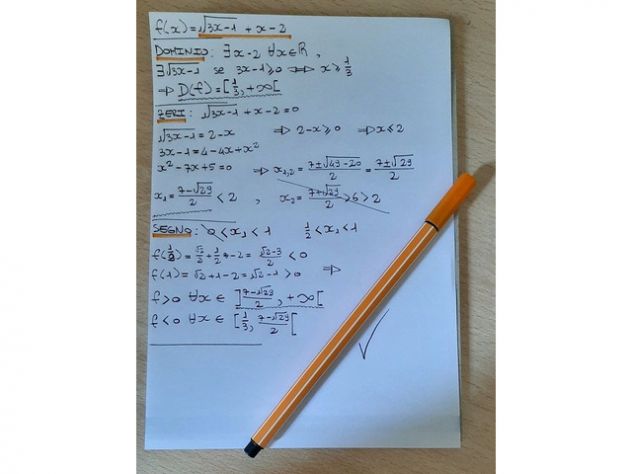 f(x) = √3x-1 + x-2
DOMINIO: ∃ x-2 ∀x∈ℝ,
∃ √3x-1 se 3x-1 ≥ 0 ⟹ x ≥ 1/3
⟹ D(f) = [1/3, +∞[
ZERI: √3x-1 + x-2 = 0
√3x-1 = 2-x ⟹ 2-x ≥ 0 ⟹ x ≤ 2
3x-1 = 4-4x+x²
x²-7x+5=0 ⟹ x₁,₂ = 7±√49-20/2 = 7±√29/2
x₁ = 7-√29/2 < 2 , x₂ = 7+√29/2 > 6 > 2
SEGNO: 0 < x₁ < 1 1/2 < x₁ < 1
f(1/2) = √2/2 + 1/2 - 2 = √2-3/2 < 0
f(1) = √2 + 1 - 2 = √2 - 1 > 0 ⟹
f > 0 ∀x ∈ ]7-√29/2, +∞[
f < 0 ∀x ∈ [1/3, 7-√29/2[